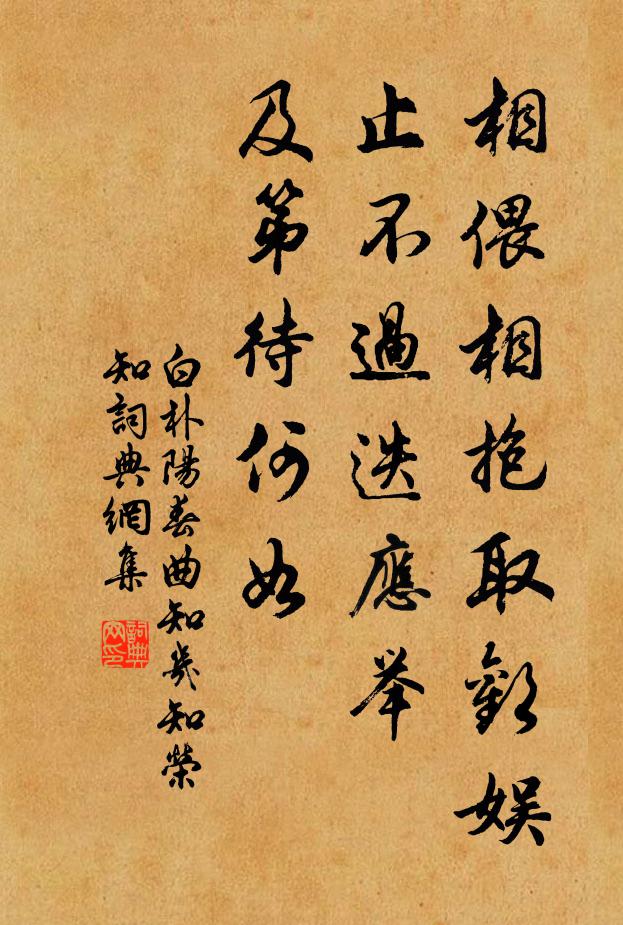 相偎相抱取歡娛
止不過迭應舉
及第待何如
白朴陽春曲知幾知榮
知詞典網集
詞典網印